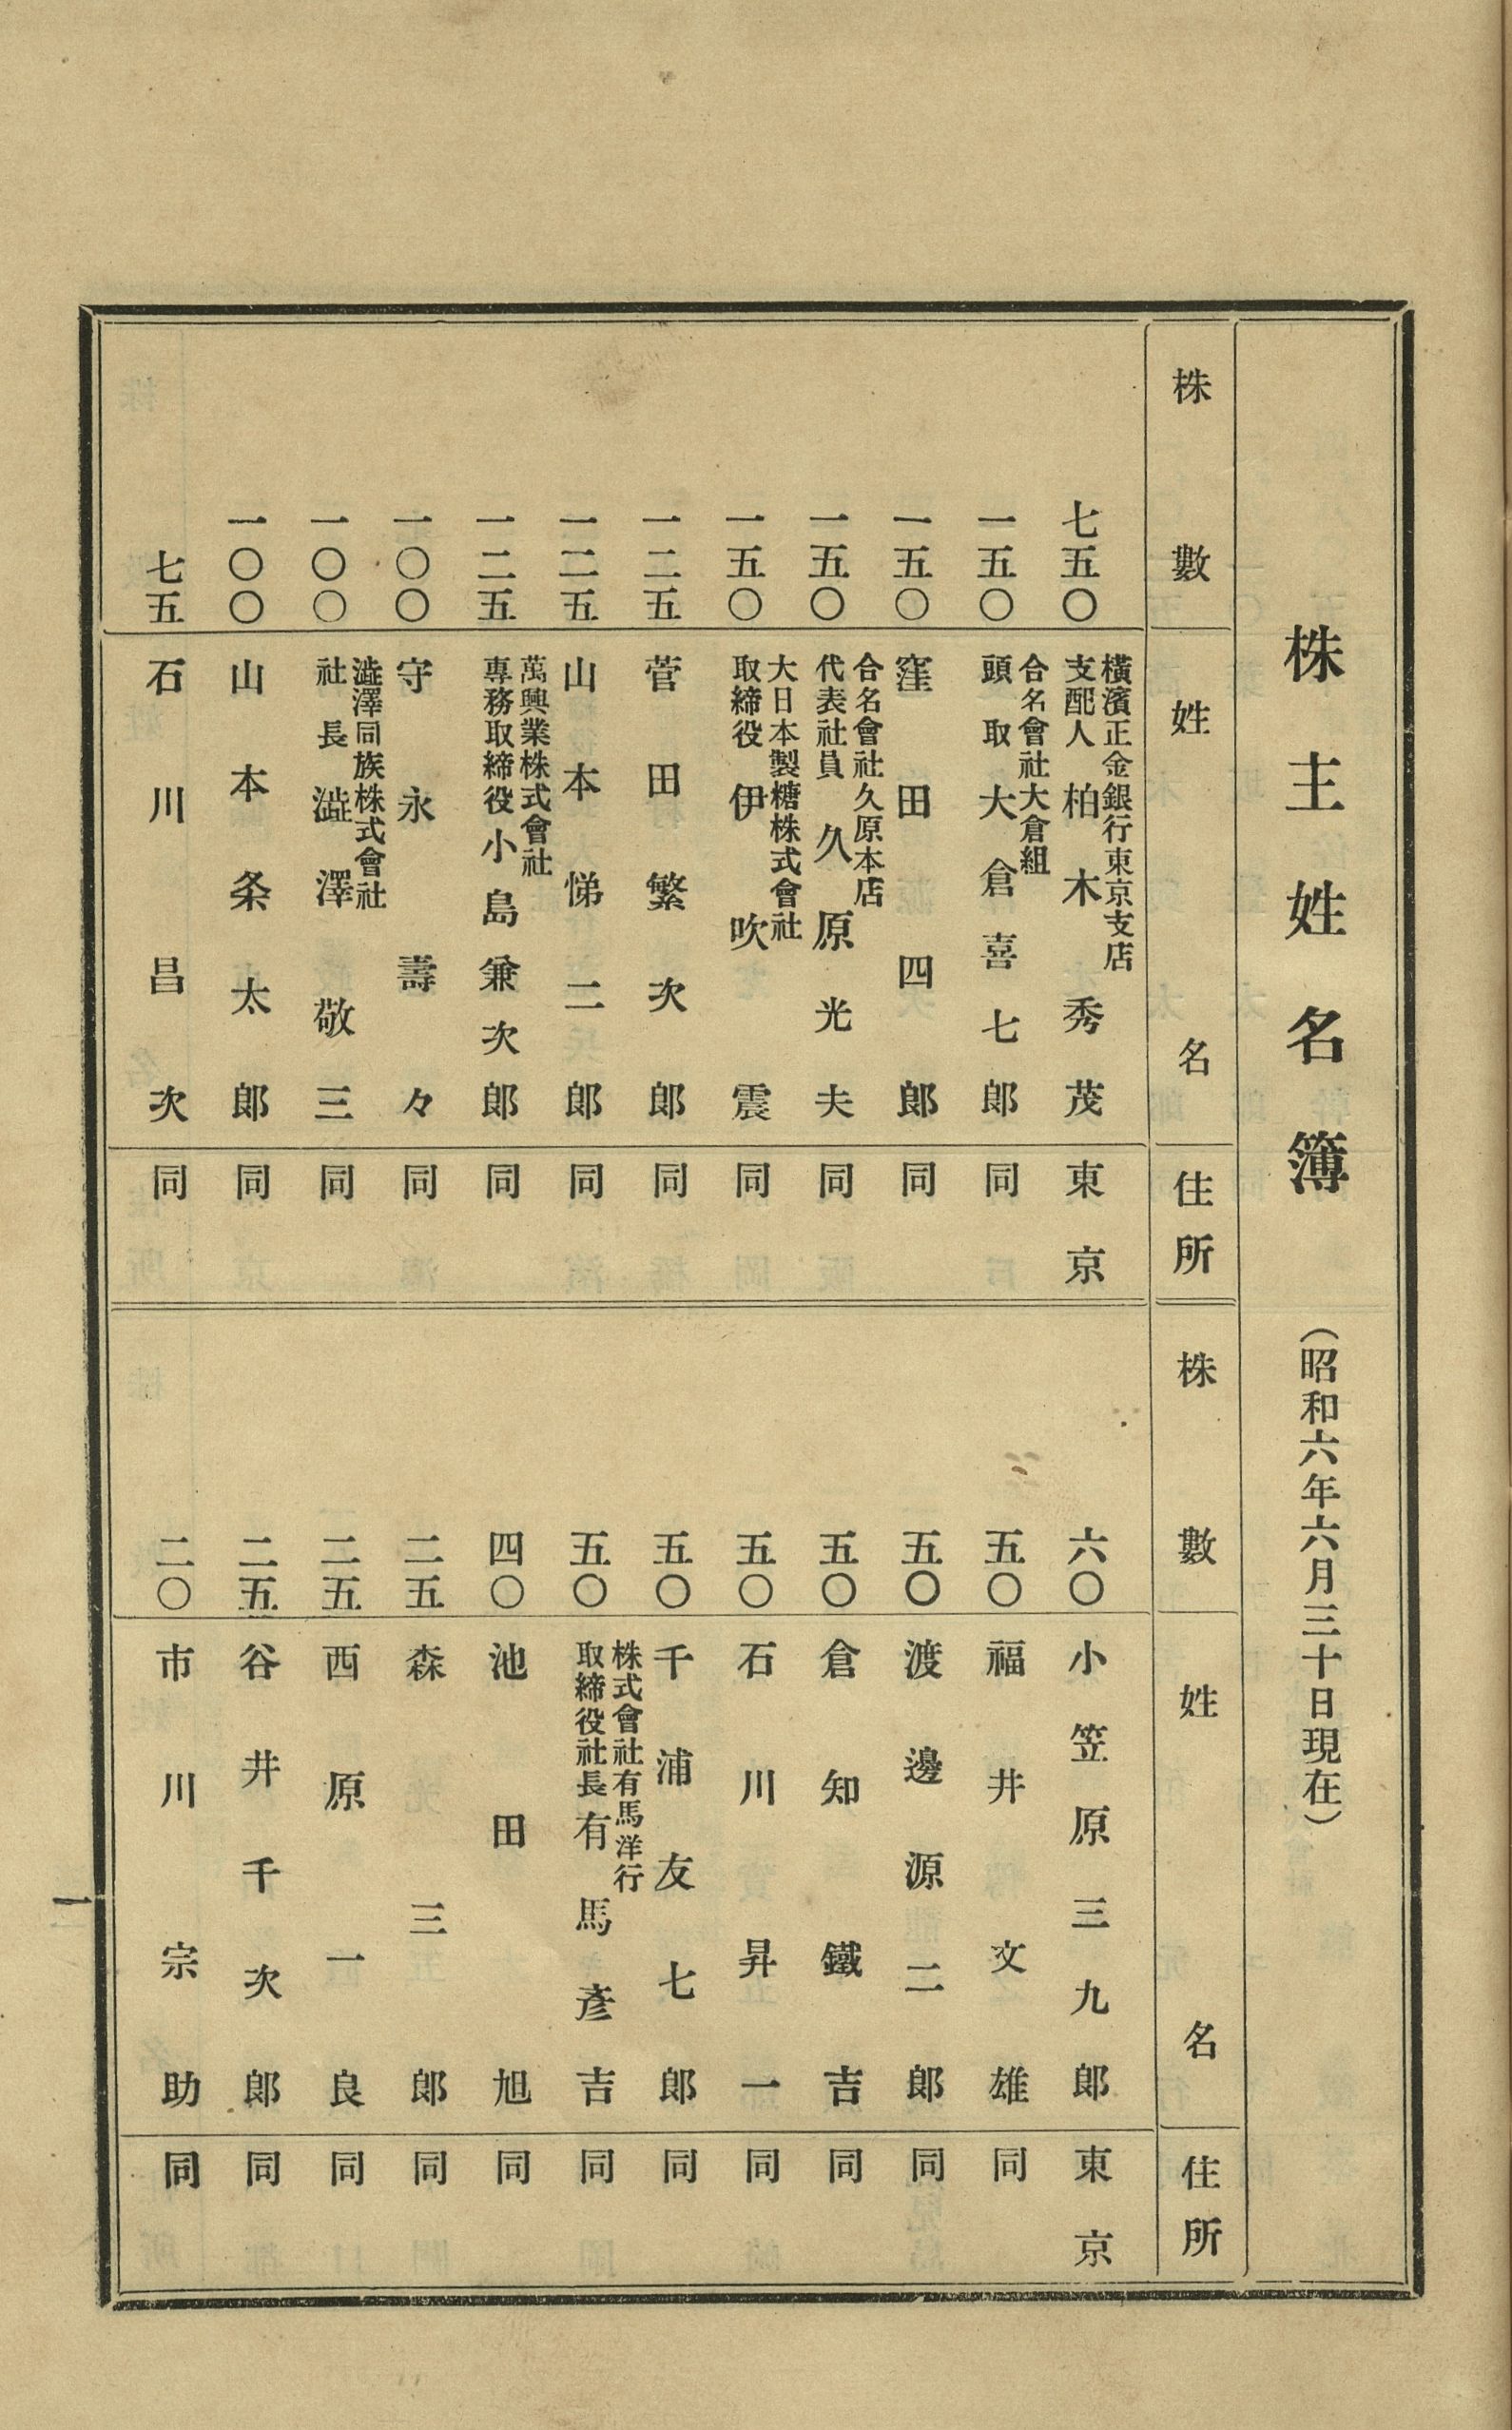 株主姓名簿 (昭和六年六月三十日現在)
株數 姓名 住所
七五〇 橫濱正金銀行東京支店 支配人 柏木秀茂 東京
一五〇 合名會社大倉組 頭取 大倉喜七郎 同
一五〇 窪田四郎 同
一五〇 合名會社久原本店 代表社員 久原光夫 同
一五〇 大日本製糖株式會社 取締役 伊吹震 同
一二五 菅田繁次郎 同
一二五 山本悌二郎 同
一二五 萬興業株式會社 專務取締役 小島兼次郎 同
一〇〇 守永壽々 同
一〇〇 澁澤同族株式會社 社長 澁澤敬三 同
一〇〇 山本条太郎 同
七五 石川昌次 同
株數 姓名 住所
六〇 小笠原三九郎 東京
五〇 福井文雄 同
五〇 渡邊源二郎 同
五〇 倉知鐵吉 同
五〇 石川昇一 同
五〇 千浦友七郎 同
五〇 株式會社有馬洋行 取締役社長 有馬彥吉 同
四〇 池田旭 同
二五 森三郎 同
二五 西原一良 同
二五 谷井千次郎 同
二〇 市川宗助 同
一